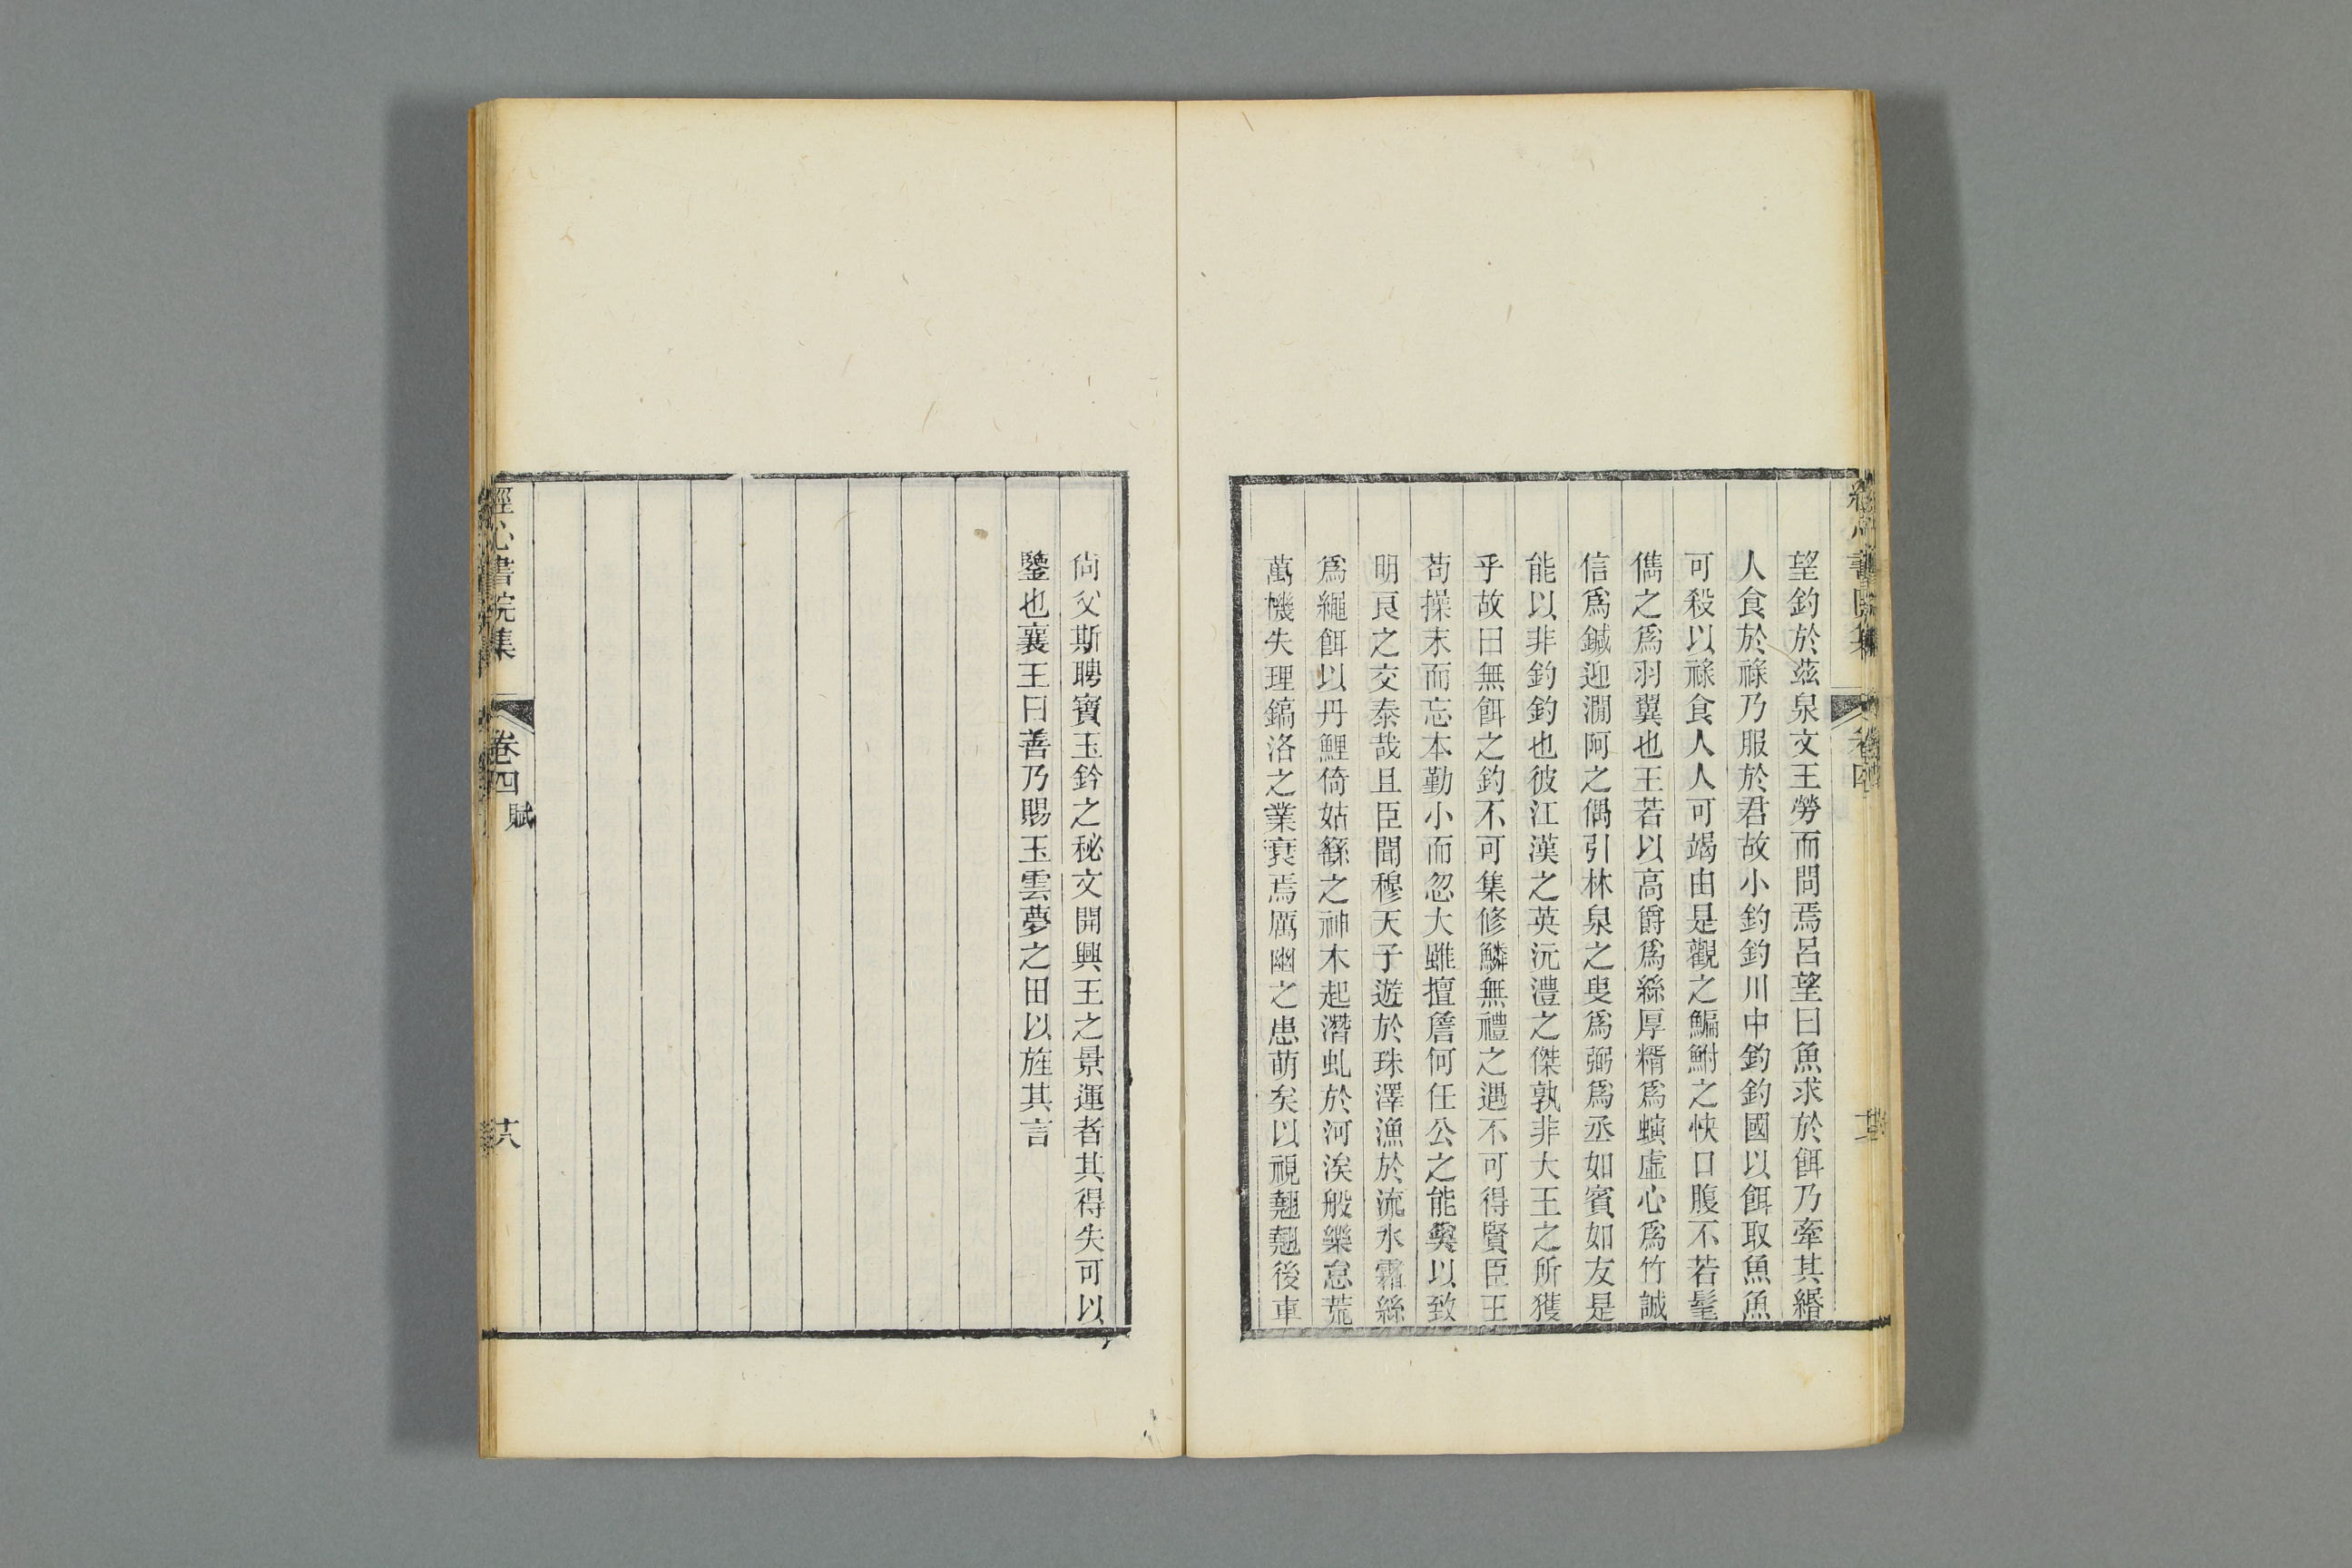 望釣於茲泉文王勞而問焉呂望曰魚求於餌乃牽其緡
人食於祿乃服於君故小釣釣川中釣釣國以餌取魚魚
可殺以祿食人人可竭由是觀之鯿鮒之快口腹不若髦
儁之爲羽翼也王若以高爵爲絲厚糈爲螾虛心爲竹誠
信爲鍼迎澗阿之偶引林泉之叟爲弼爲丞如賓如友是
能以非釣釣也彼江漢之英沅澧之傑孰非大王之所獲
乎故曰無餌之釣不可集修鱗無禮之遇不可得賢臣王
苟操末而忘本勤小而忽大雖擅詹何任公之能奚以致
明良之交泰哉且臣聞穆天子遊於珠澤漁於流水霜絲
爲繩餌以丹鯉倚姑繇之神木起潛虬於河涘般樂怠荒
萬機失理鎬洛之業衰焉厲幽之患萌矣以視翹翹後車
尙父斯聘寶玉鈐之秘文開興王之景運者其得失可以
鑒也襄王曰善乃賜玉雲夢之田以旌其言
經心書院集
卷四
賦